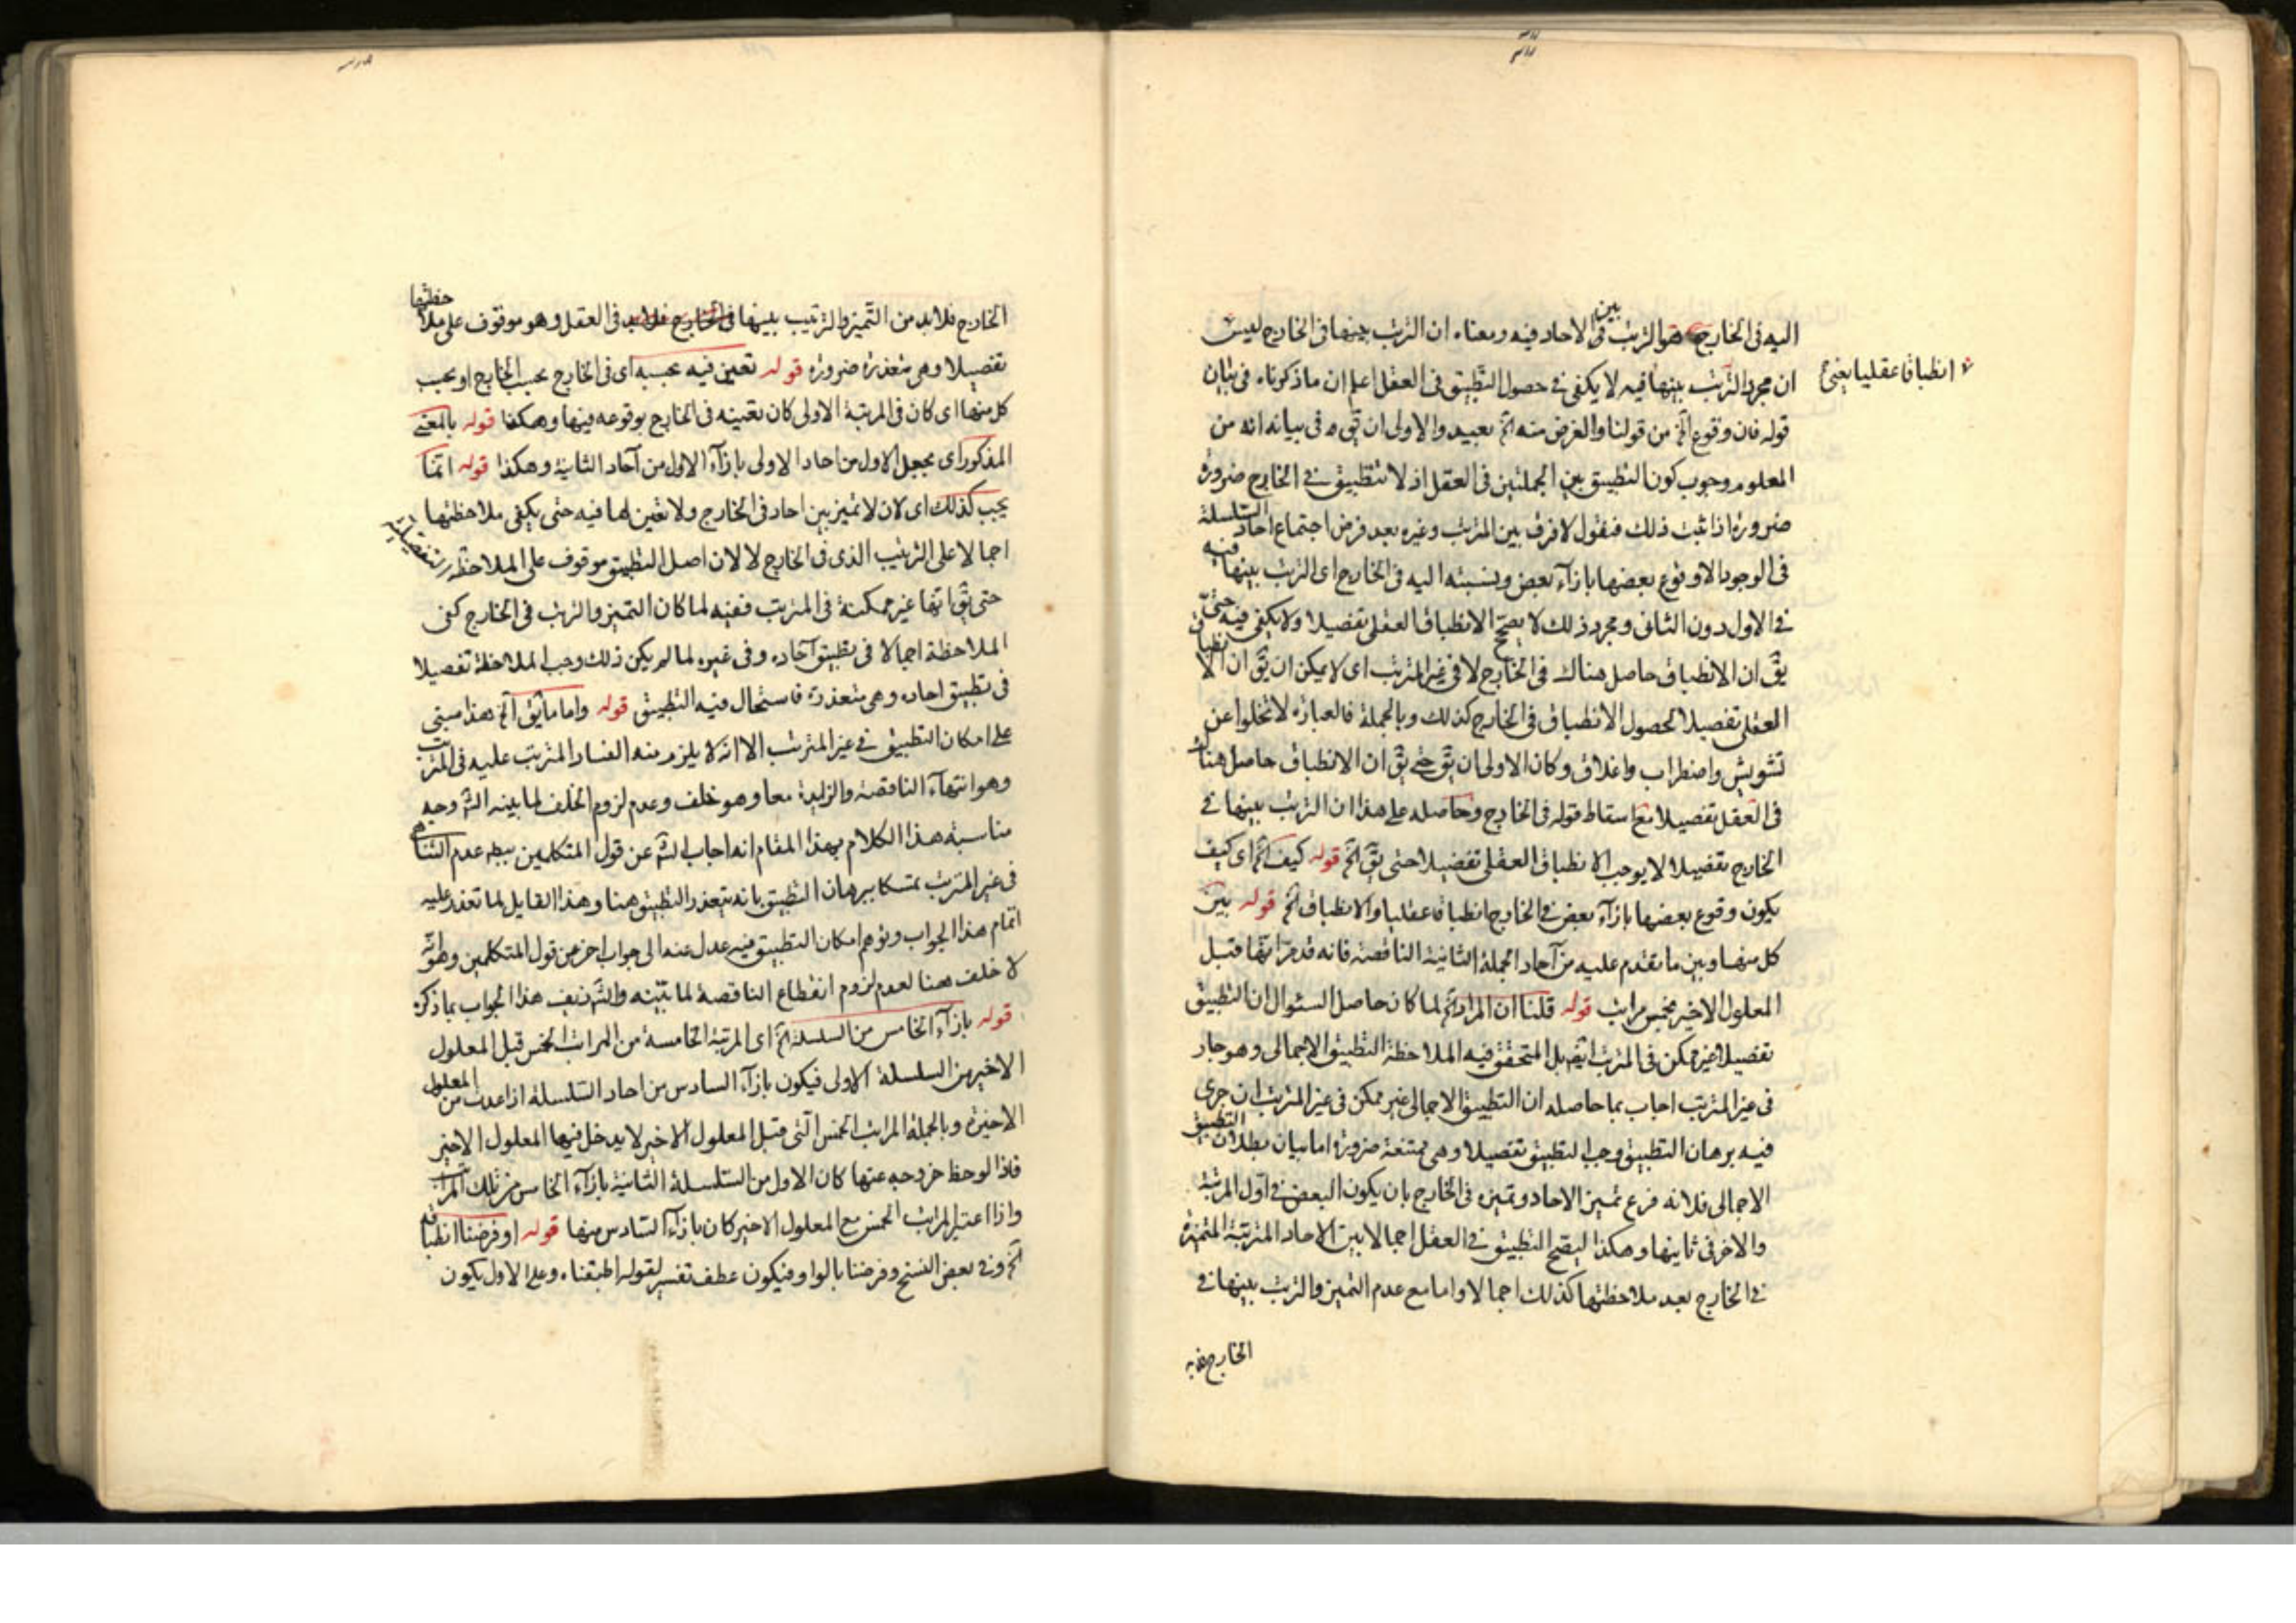 اليه فى الخارج هو الترتب بين الاحاد فيه ومعناه ان الترتب بينها فى الخارج ليس
انطباقا عقليا يعنى
ان مجرد الترتب بينها فيه لا يكفى فى حصول التطبيق فى العقل اعلم ان ما ذكرناه فى بيان
قوله فان وقوع الخ من قولنا والغرض منه الخ بعيد والاولى ان يق فى بيانه انه من
المعلوم وجوب كون التطبيق بين الجملتين فى العقل اذ لا تطبيق فى الخارج ضرورة
ضرورة اذا ثبت ذلك فنقول لا فرق بين المترتب وغيره بعد فرض اجتماع احاد السلسلة
فى الوجود الا وقوع بعضها بازآء بعض ونسبته اليه فى الخارج اى الترتب بينها فيه
فى الاول دون الثانى ومجرد ذلك لا يصحح الانطباق العقلى تفصيلا ولا يكفى فيه حتى
يق ان الانطباق حاصل هناك فى الخارج لا فى غير المترتب اى لا يمكن ان يق ان الانطباق
العقلى تفصيلا لحصول الانطباق فى الخارج كذلك وبالجملة فالعبارة لا تخلوا عن
تشويش واضطراب واغلاق وكان الاولى ان يق حتى يق ان الانطباق حاصل هناك
فى العقل تفصيلا مع اسقاط قوله فى الخارج وحاصله على هذا ان الترتب بينها فى
الخارج تفصيلا لا يوجب الانطباق العقلى تفصيلا حتى يق الخ قوله كيف الخ اى كيف
يكون وقوع بعضها بازآء بعض فى الخارج انطباقا عقليا والانطباق الخ قوله بين
كل منها وبين ما تقدم عليه من آحاد الجملة الثانية الناقصة فانه قد مر انها قبل
المعلول الاخير بخمس مراتب قوله قلنا ان المراد الخ لما كان حاصل السئوال ان التطبيق
تفصيلا غير ممكن فى المترتب ايضا بل المتحقق فيه الملاحظة التطبيق الاجمالى وهو جار
فى غير المترتب اجاب بما حاصله ان التطبيق الاجمالى غير ممكن فى غير المترتب ان جرى
فيه برهان التطبيق وجب التطبيق تفصيلا وهى ممتنعة ضرورة اما بيان بطلان التطبيق
الاجمالى فلانه فرع تميز الاحاد وتميزه فى الخارج بان يكون البعض فى اول المرتبة
والاخر فى ثانيها وهكذا ليصح التطبيق فى العقل اجمالا بين الاحاد المترتبة المتميزة
فى الخارج بعد ملاحظتها كذلك اجمالا واما مع عدم التميز والترتب بينها فى
الخارج
الخارج فلابد من التميز والترتيب بينها فى الخارج فلابد فى العقل وهو موقوف على ملاحظتها
تفصيلا وهى متعذرة ضرورة قوله تعين فيه بحسبه اى فى الخارج بحسب الخارج او بحسب
كل منها اى كان فى المرتبة الاولى كان تعينه فى الخارج بوقوعه فيها وهكذا قوله بالمعنى
المذكور اى بجعل الاول من احاد الاولى بازآء الاول من آحاد الثانية وهكذا قوله انما
يجب كذلك اى لان لا تميز بين احاد فى الخارج ولا تعين لها فيه حتى يكفى ملاحظتها
اجمالا على الترتيب الذى فى الخارج لا لان اصل التطبيق موقوف على الملاحظة التفصيلية
حتى يق انها غير ممكنة فى المترتب ففيه لما كان التميز والترتب فى الخارج كفى
الملاحظة اجمالا فى تطبيق آحاده وفى غيره لما لم يكن ذلك وجب الملاحظة تفصيلا
فى تطبيق احاده وهى متعذرة فاستحال فيه التطبيق قوله واما ما يق الخ هذا مبنى
على امكان التطبيق فى غير المترتب الا انه لا يلزم منه الفساد المترتب عليه فى المترتب
وهو انتهآء الناقصة والزايدة معا وهو خلف وعدم لزوم الخلف لما بينه الش وجه
مناسبة هذا الكلام بهذا المقام انه اجاب الش عن قول المتكلمين عدم التناهى
فى غير المترتب تمسكا ببرهان التطبيق بانه يتعذر التطبيق هنا وهذا القايل لما تعذر عليه
اتمام هذا الجواب وتوهم امكان التطبيق فيه عدل عنه الى جواب اخر من قول المتكلمين وهو انه
لا خلف هنا لعدم لزوم انقطاع الناقصة لما بينه والش زيف هذا الجواب بما ذكره
قوله بازآء الخامس من السلسلة الخ اى المرتبة الخامسة من المراتب الخمس قبل المعلول
الاخير من السلسلة الاولى فيكون بازآء السادس من احاد السلسلة اذا عدت من المعلول
الاخيرة وبالجملة المراتب الخمس التى قبل المعلول الاخير لا يدخل فيها المعلول الاخير
فاذا لوحظ خروجه عنها كان الاول من السلسلة الثانية بازآء الخامس من تلك المراتب
واذا اعتبر المراتب الخمس مع المعلول الاخير كان بازآء السادس منها قوله او فرضنا انطباقه
الخ وفى بعض النسخ وفرضنا بالواو فيكون عطف تفسير لقوله اطبقناه وعلى الاول يكون